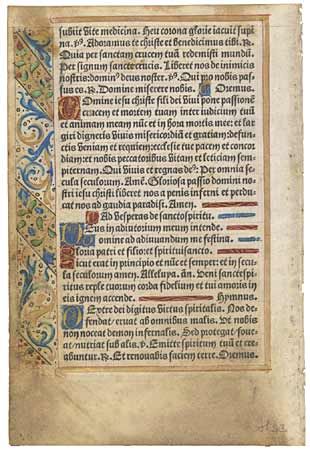 subiit vite medicina. Heu corona glorie iacuit supi
na. ꝟ. Adoramus te christe et benedicimus tibi. R.
Quia per sanctam crucem tuā redemisti mundū.
Per signum sancte crucis. Libera nos de inimicis
nostris: domin⁹ deus noster. ꝟ. Qui pro nobis pas
sus es. R. Domine miserere nobis. Oremus.
Domine iesu christe fili dei viui pone passionē
crucem et mortem tuam inter iudicium tuū
et animam meam nūc et in hora mortis mee: et lar
giri digneris viuis misericordiā et gratiam: defun
ctis veniam et requiem: ecclesie tue pacem et concor
diam: et nobis peccatoribus vitam et leticiam sem
piternam. Qui viuis et regnas de⁹. Per omnia
secula seculorum. Amē. Gloriosa passio domini no
stri iesu christi eruat nos a penis inferni et perdu
cat nos ad gaudia paradisi. Amen.
Ad vesperas de sancto spiritu.
Deus in adiutorium meum intende.
Domine ad adiuuandum me festina.
Gloria patri et filio: et spiritui sancto.
Sicut erat in principio et nūc et semper: et in secu
la seculorum amen. Alleluya. añ. Veni sancte spi
ritus reple tuorum corda fidelium et tui amoris in
eis ignem accende. Hymnus.
Dextre dei digitus virtus spiritalis. Nos de
fendat, eruat ab omnibus malis. Ut nobis
non noceat demon infernalis. Sed protegat, foue
at, nutriat sub alis. ꝟ. Emitte spiritum tuū et cre
abuntur. R. Et renouabis faciem terre. Oremus.